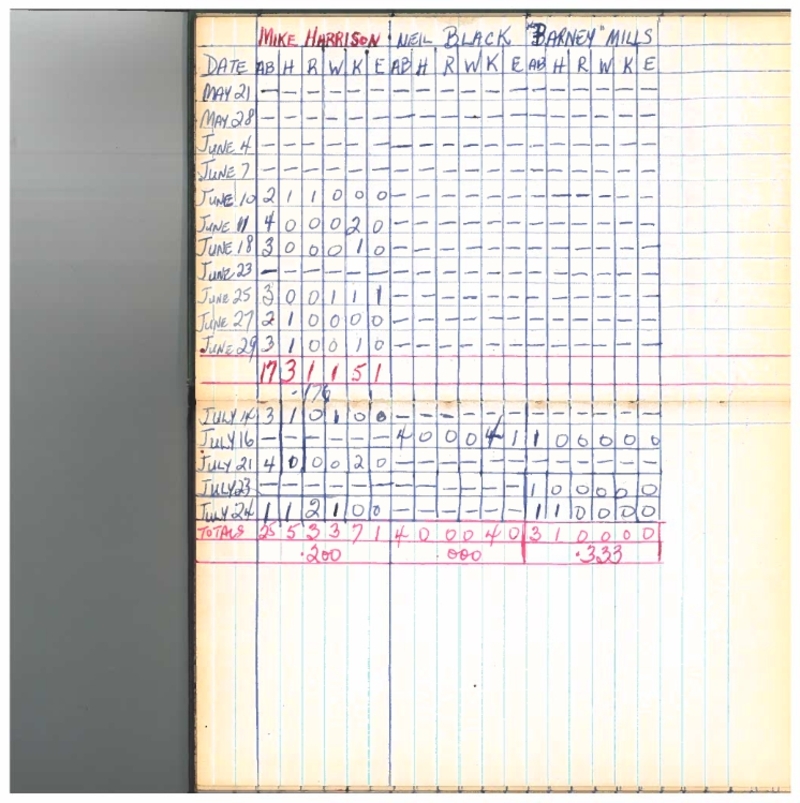 MIKE HARRISON · NEIL BLACK "BARNEY" MILLS
DATE AB H R W K E AB H R W K E AB H R W K E
MAY 21 — — — — — — — — — — — — — — — — — —
MAY 28 — — — — — — — — — — — — — — — — — —
JUNE 4 — — — — — — — — — — — — — — — — — —
JUNE 7 — — — — — — — — — — — — — — — — — —
JUNE 10 2 1 1 0 0 0 — — — — — — — — — — — —
JUNE 11 4 0 0 0 2 0 — — — — — — — — — — — —
JUNE 18 3 0 0 0 1 0 — — — — — — — — — — — —
JUNE 23 — — — — — — — — — — — — — — — — — —
JUNE 25 3 0 0 1 1 1 — — — — — — — — — — — —
JUNE 27 2 1 0 0 0 0 — — — — — — — — — — — —
JUNE 29 3 1 0 0 1 0 — — — — — — — — — — — —
17 3 1 1 5 1
.176
JULY 14 3 1 0 1 0 0 — — — — — — — — — — — —
JULY 16 — — — — — — 4 0 0 0 4 1 1 0 0 0 0 0
JULY 21 4 0 0 0 2 0 — — — — — — — — — — — —
JULY 23 — — — — — — — — — — — — 1 0 0 0 0 0
JULY 24 1 1 2 1 0 0 — — — — — — 1 1 0 0 0 0
TOTALS 25 5 3 3 7 1 4 0 0 0 4 0 3 1 0 0 0 0
.200 .000 .333